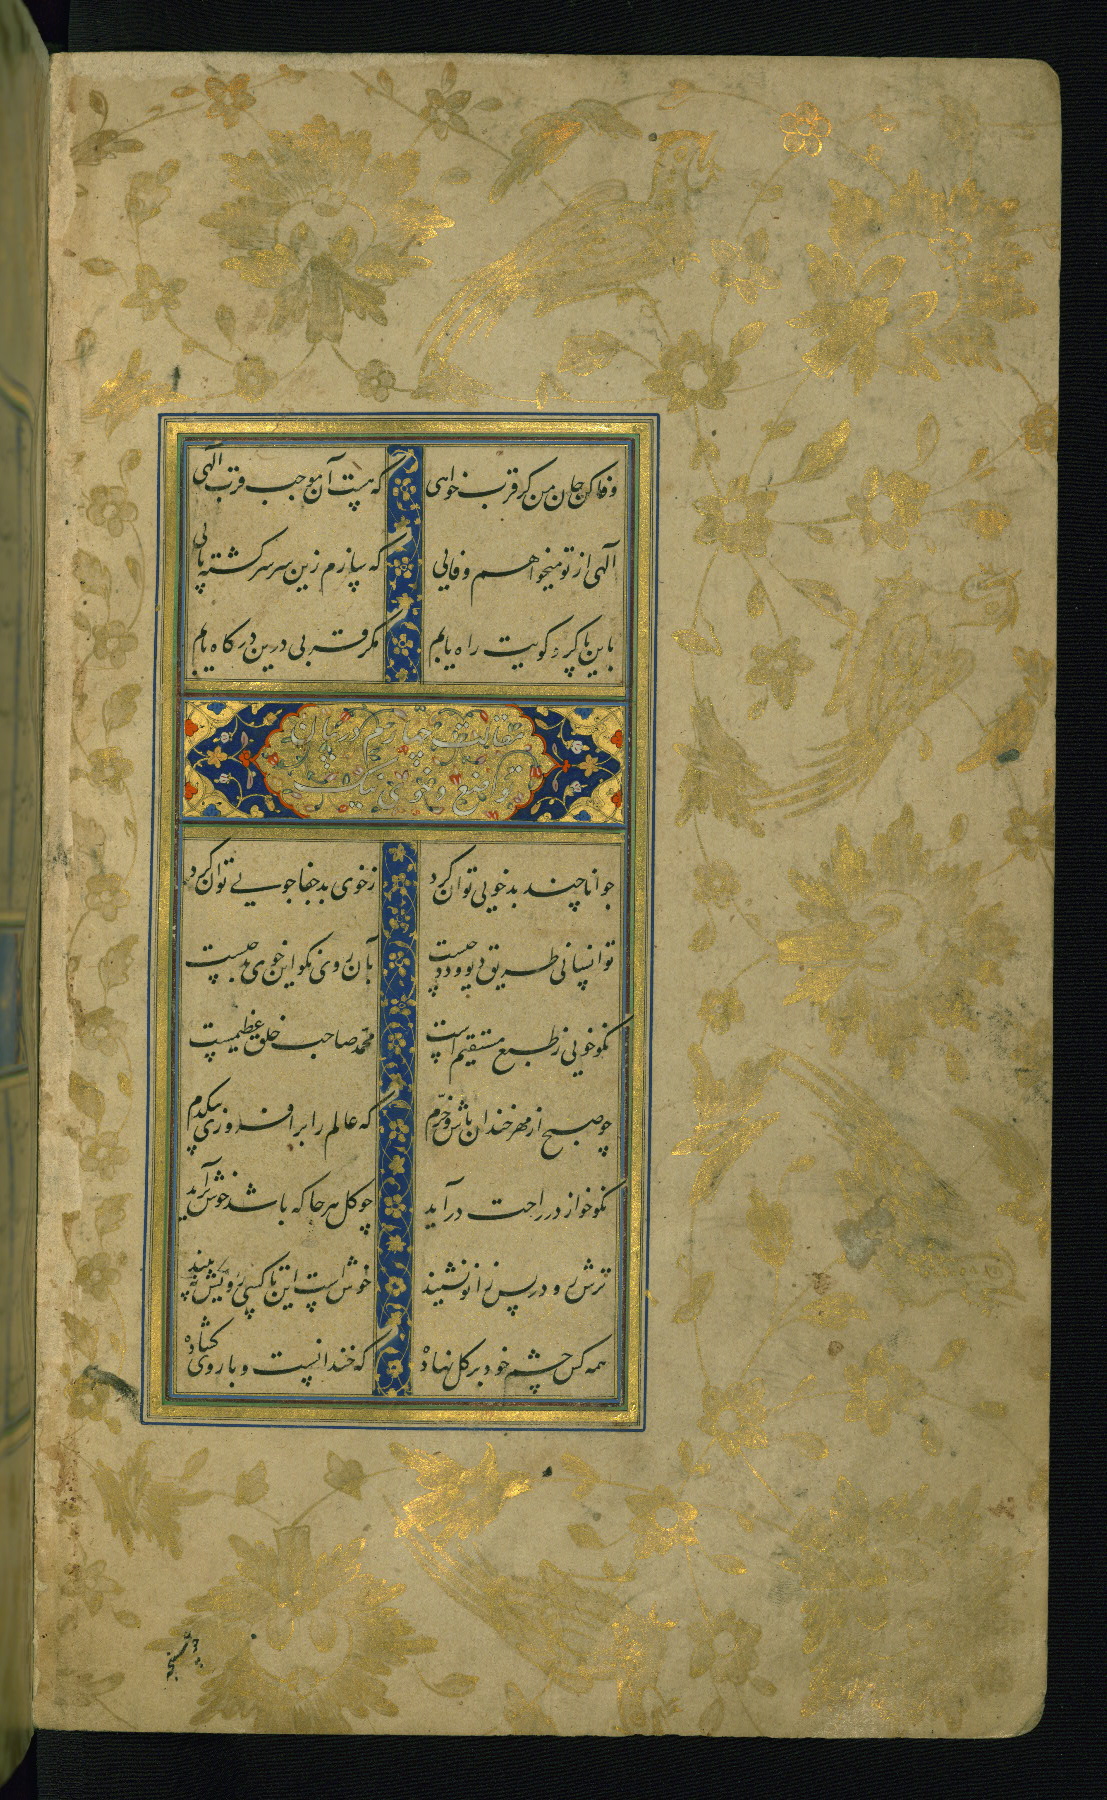 وفا کن جان من کر قرب خواهی که هست آن موجب قرب الهی
الهی از تو میخواهم وفایی که سازم زین سر سرکشته پایی
باین پا کرد کویت راه یابم مکر قربی درین درکاه یابم
مقالت چهارم در بیان
تواضع و خوی نیک
جوانا چند بدخویی توان کرد ز خوی بد جفاجویی توان کرد
تو انسانی طریق دیو و دد چیست بآن روی نکو این خوی بد چیست
نکوخویی ز طبع مستقیم است محمد صاحب خلق عظیمست
چو صبح از مهر خندان باش و خرم که عالم را برافروزی بیکدم
نکوخو از در راحت درآید چو کل هر جا که باشد خوش برآید
ترش رو در پس زانو نشیند خوش است این تا کسی رویش نه بیند
همه کس چشم خود بر کل نهاده که خندانست و با روی کشاده